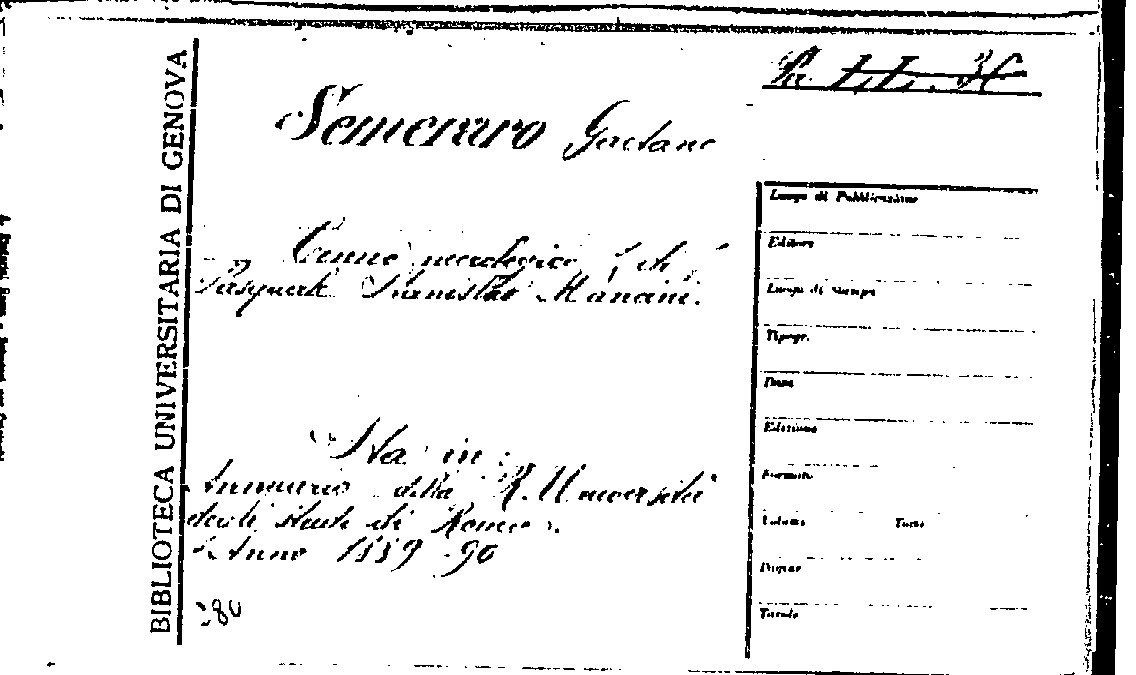 BIBLIOTECA UNIVERSITARIA DI GENOVA
Semeraro Gaetano
Cenno necrologico di
Pasquale Stanislao Mancini.
Sta in:
Annuario della R. Università
degli studi di Roma.
Anno 1889-90
Luogo di Pubblicazione
Editore
Luogo di stampa
Tipogr.
Data
Edizione
Formato
Volume Tomo
Pagine
Tavole